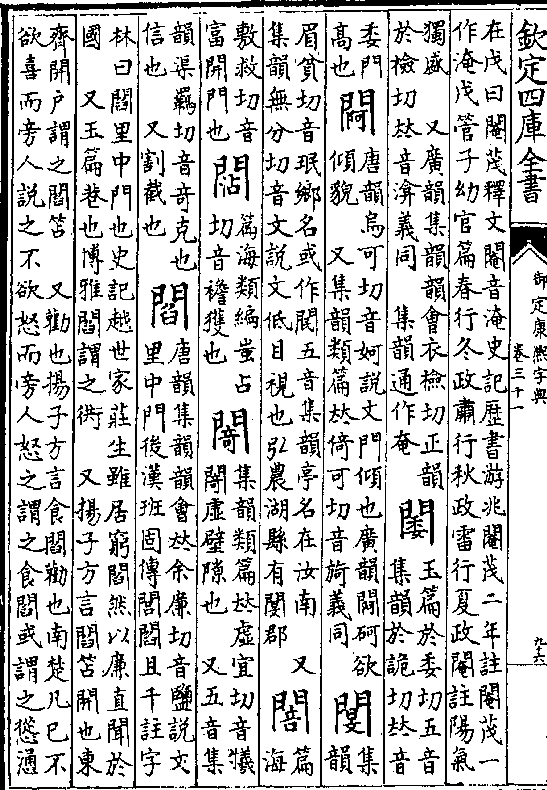 欽定四庫全書
御定康熙字典
卷三十一
九十六
在戊曰閹茂釋文閹音淹史記歴書游兆閹茂二年註閹茂一
作淹戊管子幼官篇春行冬政肅行秋政雷行夏政閹註陽氣
獨盛　又廣韻集韻韻會衣檢切正韻
於檢切𠀤音渰義同　集韻通作奄
䦱
玉篇於委切五音
集韻於詭切𠀤音
委門
高也
閜
唐韻烏可切音妸說文門傾也廣韻閜砢欲
傾貌　又集韻類篇𠀤倚可切音旖義同
閺
集
韻
眉貧切音珉鄉名或作閿五音集韻亭名在汝南　又
集韻無分切音文說文低目視也弘農湖縣有閺郡
篇
海
敷救切音
富開門也
篇海類編蚩占
切音襜獲也
集韻類篇𠀤虛宜切音犧
閜虛壁隙也　又五音集
韻渠羈切音奇克也
信也　又割截也
閻
唐韻集韻韻會𠀤余廉切音鹽說文
里中門後漢班固傳閭閻且千註字
林曰閻里中門也史記越世家莊生雖居窮閻然以廉直聞於
國　又玉篇巷也博雅閻謂之衖　又揚子方言閻笘開也東
齊開户謂之閻笘　又勸也揚子方言食閻勸也南楚凡已不
欲喜而旁人説之不欲怒而旁人怒之謂之食閻或謂之慫慂